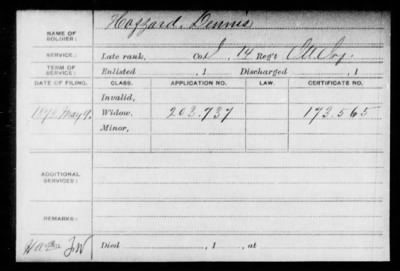 NAME OF SOLDIER: Hazzard, Dennis
SERVICE: Late rank, Co. I, 14 Reg't
TERM OF SERVICE: Enlisted , 1 Discharged , 1
DATE OF FILING. CLASS. APPLICATION NO. LAW. CERTIFICATE NO.
Invalid,
May 9. Widow, 203.737 173.565
Minor,
ADDITIONAL SERVICES:
REMARKS:
Died , 1 , at